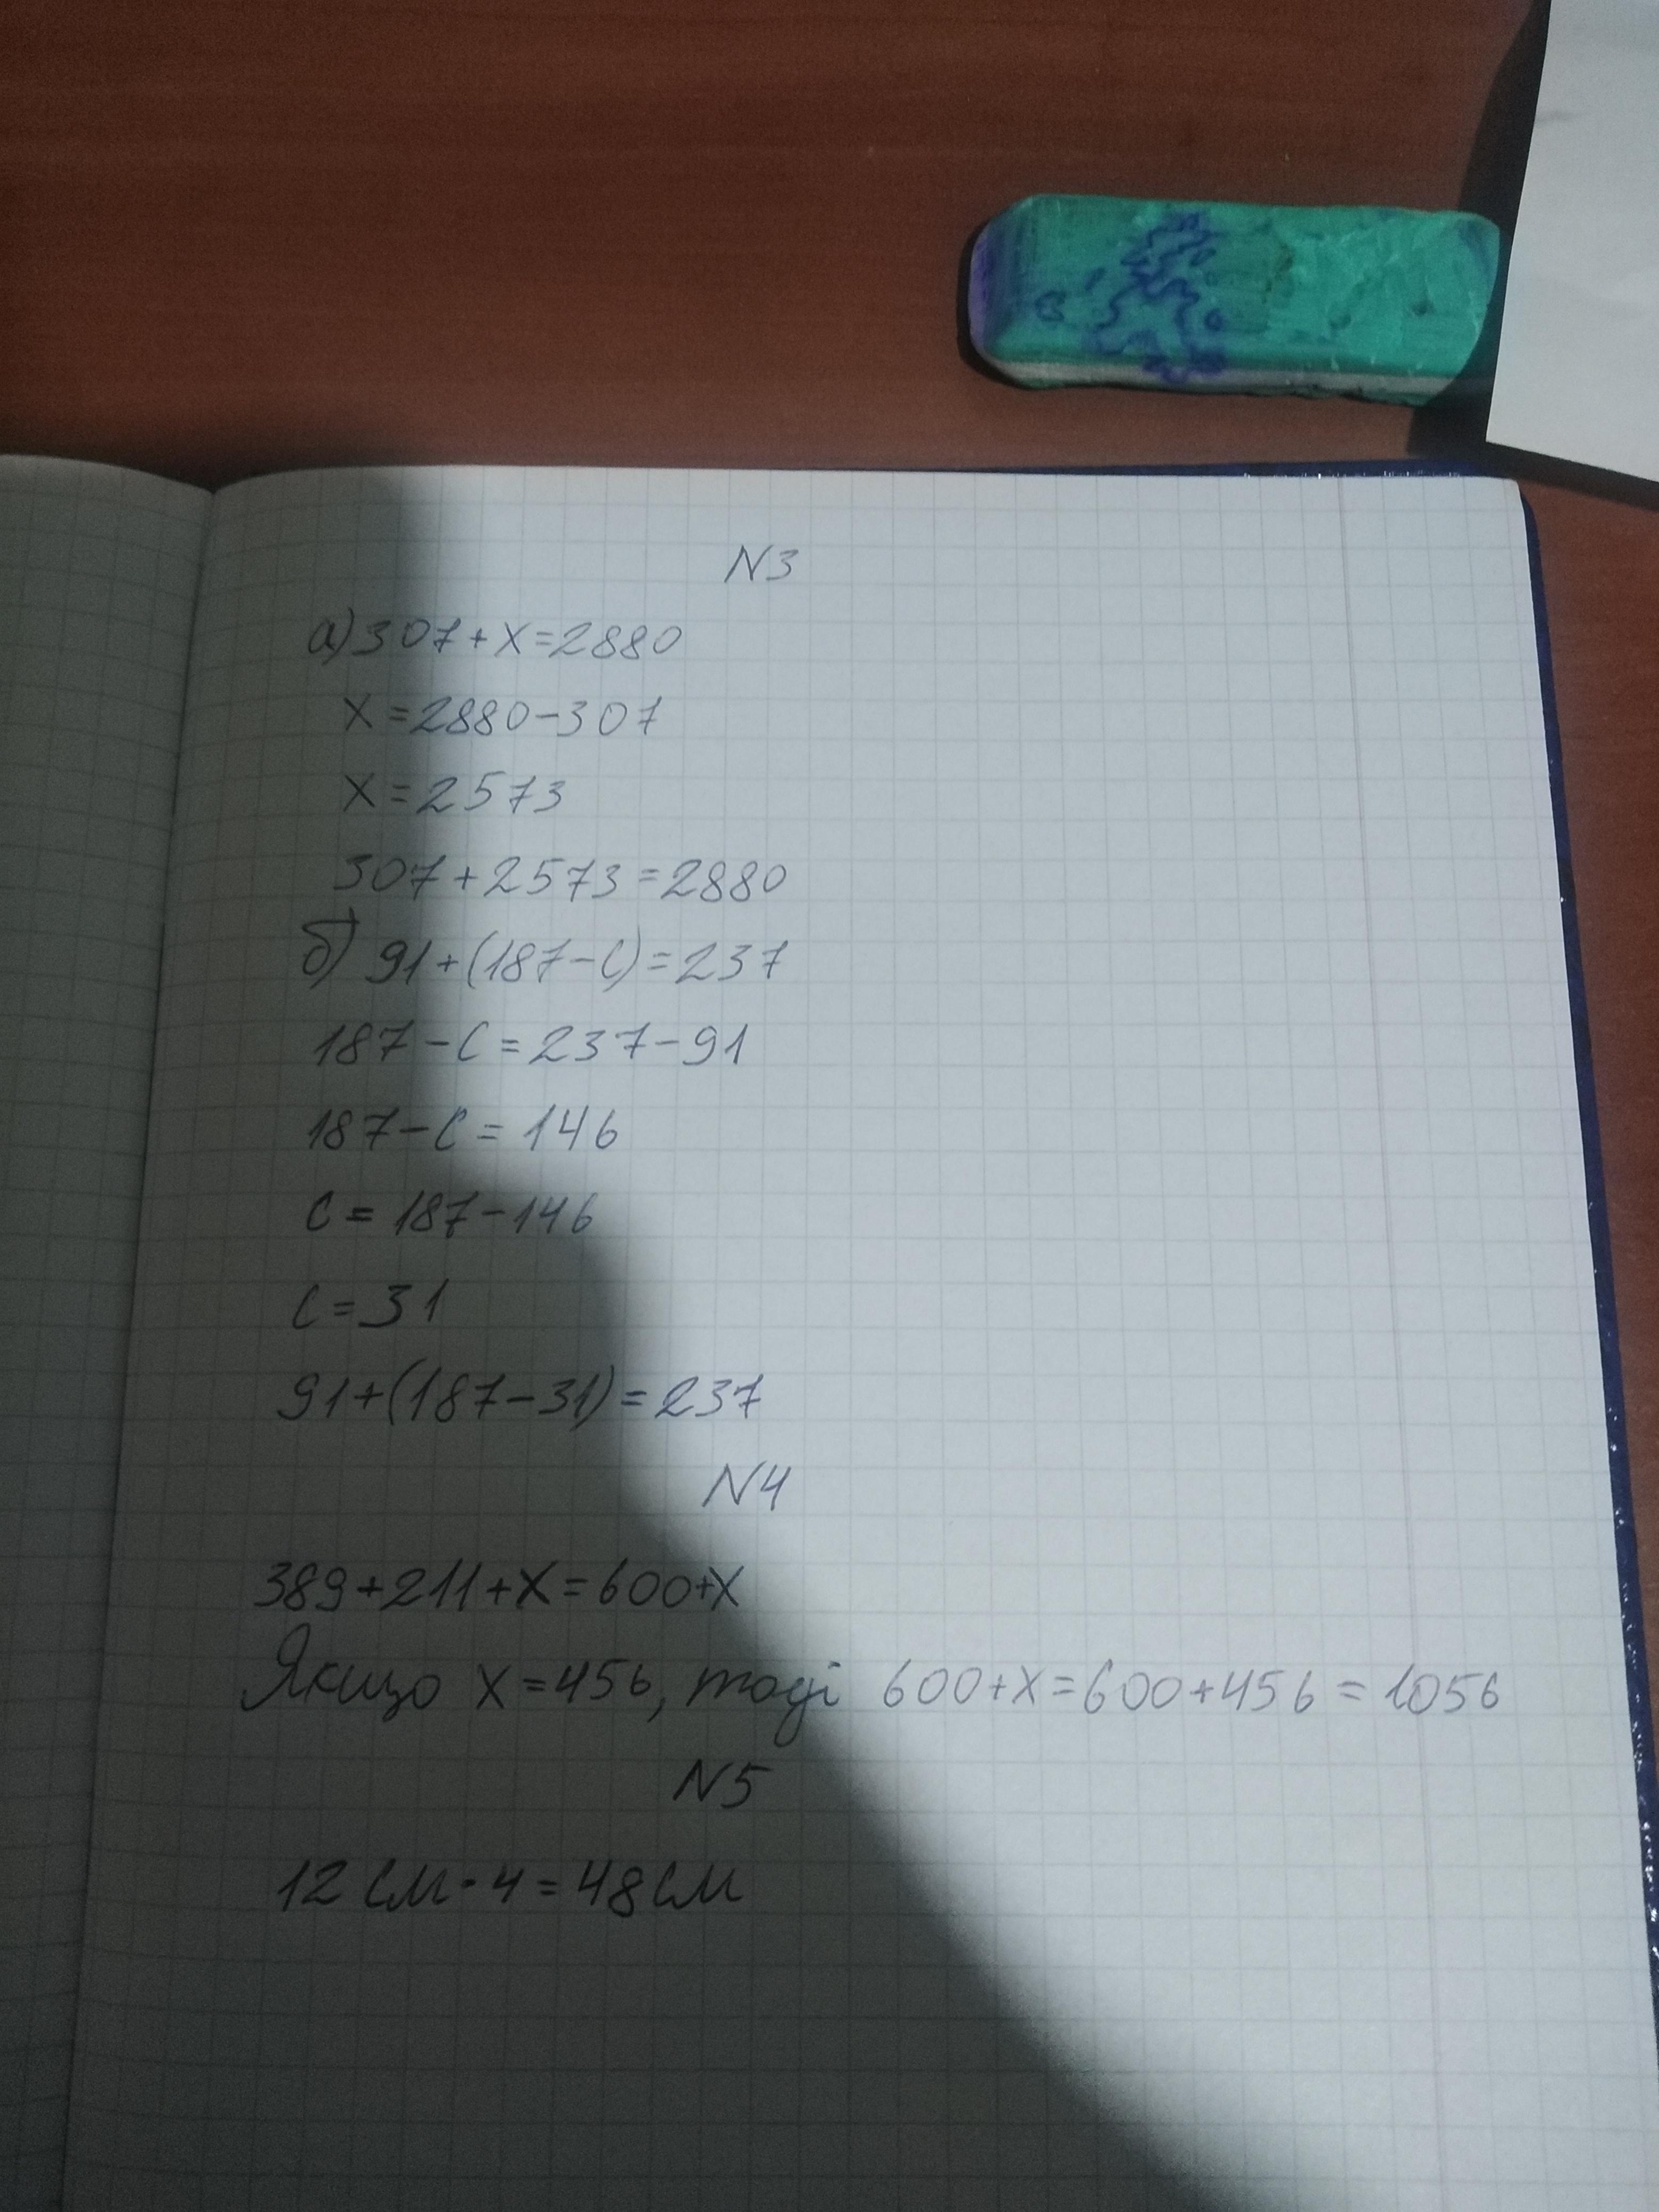 N3
а) 307+x=2880
x=2880-307
x=2573
307+2573=2880
б) 91+(187-c)=237
187-c=237-91
187-c=146
c=187-146
c=31
91+(187-31)=237
N4
389+211+x=600+x
Якщо x=456, тоді 600+x=600+456=1056
N5
12 см·4=48см